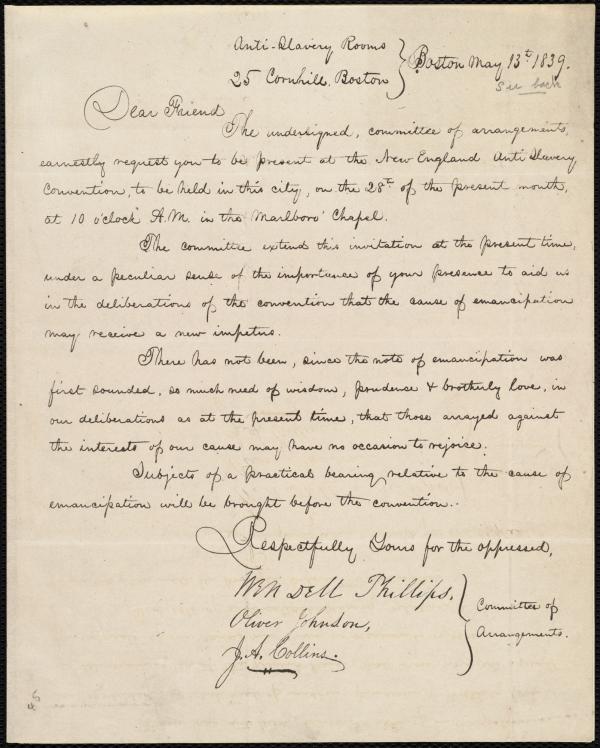 Anti-Slavery Rooms
25 Cornhill, Boston
Boston May 13th 1839.
See back
Dear Friend
The undersigned, committee of arrangements,
earnestly request you to be present at the New England Anti Slavery
Convention, to be held in this city, on the 28th of the present month,
at 10 o'clock A.M. in the Marlboro' Chapel.
The committee extend this invitation at the present time,
under a peculiar sense of the importance of your presence to aid us
in the deliberations of the convention that the cause of emancipation
may receive a new impetus.
There has not been, since the note of emancipation was
first sounded, so much need of wisdom, prudence & brotherly love, in
our deliberations as at the present time, that those arrayed against
the interests of our cause may have no occasion to rejoice.
Subjects of a practical bearing relative to the cause of
emancipation will be brought before the convention..
Respectfully Yours for the oppressed,
Wendell Phillips,
Oliver Johnson,
J.A. Collins.
Committee of
Arrangements.